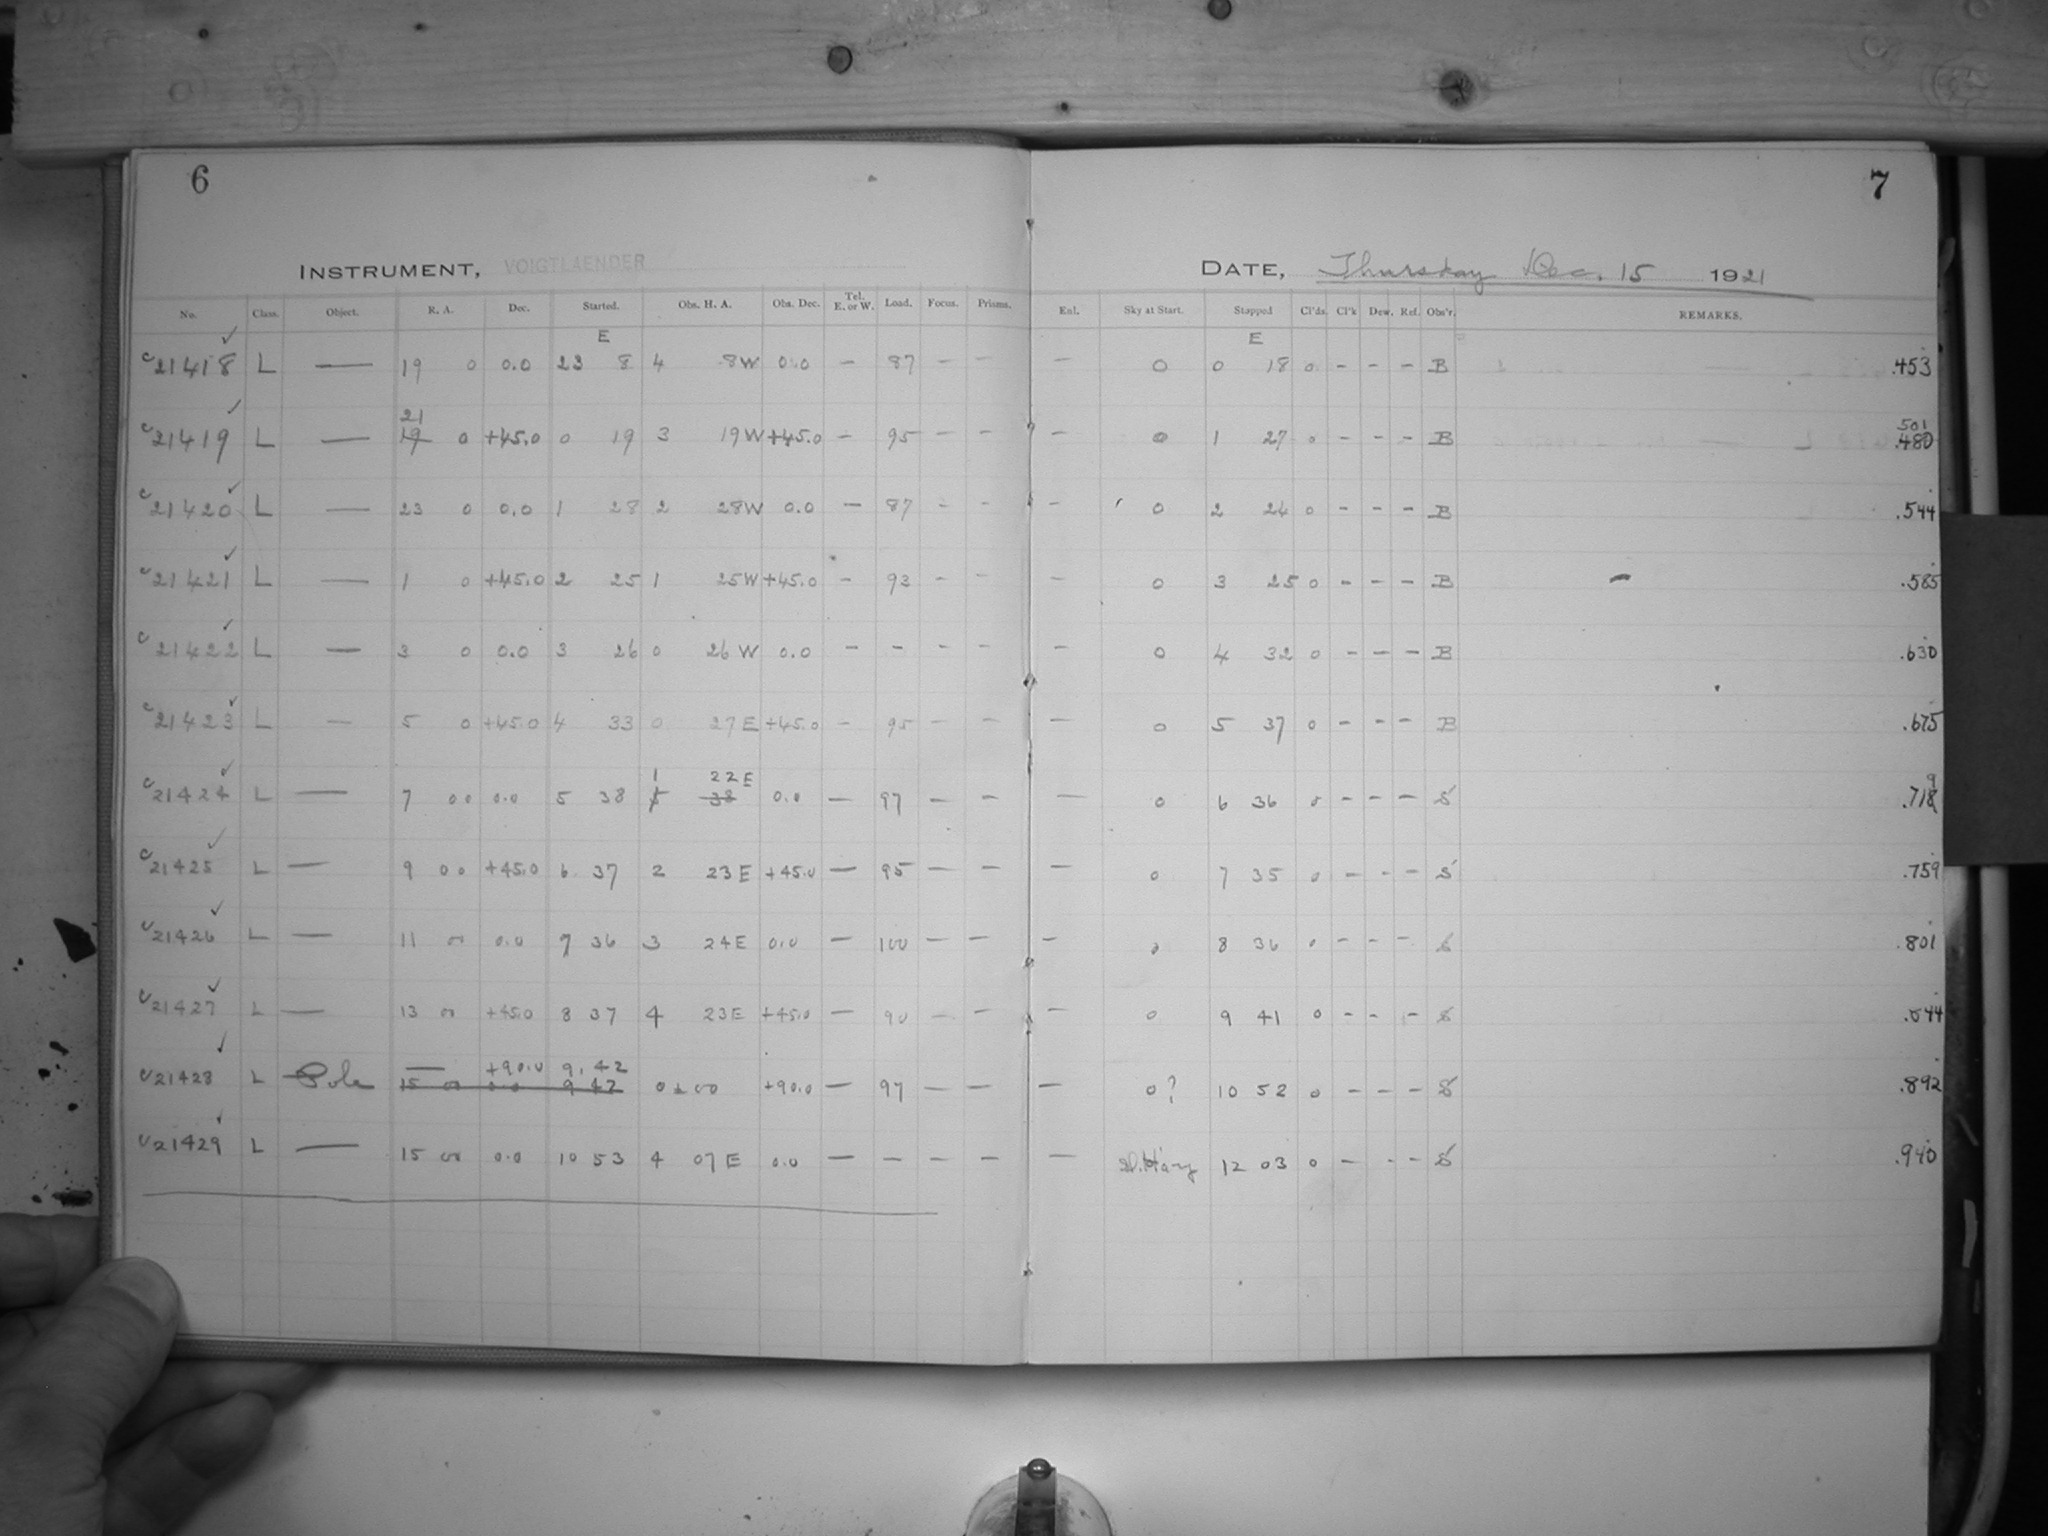 6
7
INSTRUMENT, VOIGTLAENDER
DATE, Thursday Dec. 15 1921
No. Class. Object. R. A. Dec. Started. Obs. H. A. Obs. Dec. Tel. E. or W. Load. Focus. Prisms. Enl. Sky at Start. Stopped Cl'ds. Cl'k Dew. Ref. Obs'r. REMARKS.
E E
c21418 L — 19 0 0.0 23 8 4 8W 0.0 – 87 – – – 0 0 18 0 – – – B .453
21 501
c21419 L — 19 0 +45.0 0 19 3 19W +45.0 – 95 – – – 0 1 27 0 – – – B .480
c21420 L — 23 0 0.0 1 28 2 28W 0.0 – 87 – – – 0 2 24 0 – – – B .544
c21421 L — 1 0 +45.0 2 25 1 25W +45.0 – 93 – – – 0 3 25 0 – – – B .585
c21422 L — 3 0 0.0 3 26 0 26W 0.0 – – – – – 0 4 32 0 – – – B .630
c21423 L — 5 0 +45.0 4 33 0 27E +45.0 – 95 – – – 0 5 37 0 – – – B .675
1 22E 9
c21424 L — 7 00 0.0 5 38 5 38 0.0 – 97 – – – 0 6 36 0 – – – S .718
c21425 L — 9 00 +45.0 6 37 2 23E +45.0 – 95 – – – 0 7 35 0 – – – S .759
c21426 L — 11 00 0.0 7 36 3 24E 0.0 – 100 – – – 0 8 36 0 – – – S .801
c21427 L — 13 00 +45.0 8 37 4 23E +45.0 – 90 – – – 0 9 41 0 – – – S .844
— +90.0 9.42
c21428 L Pole 15 00 0.0 9 42 0 ± 00 +90.0 – 97 – – – 0? 10 52 0 – – – S .892
c21429 L — 15 00 0.0 10 53 4 07E 0.0 – – – – – Hazy 12 03 0 – – – S .940